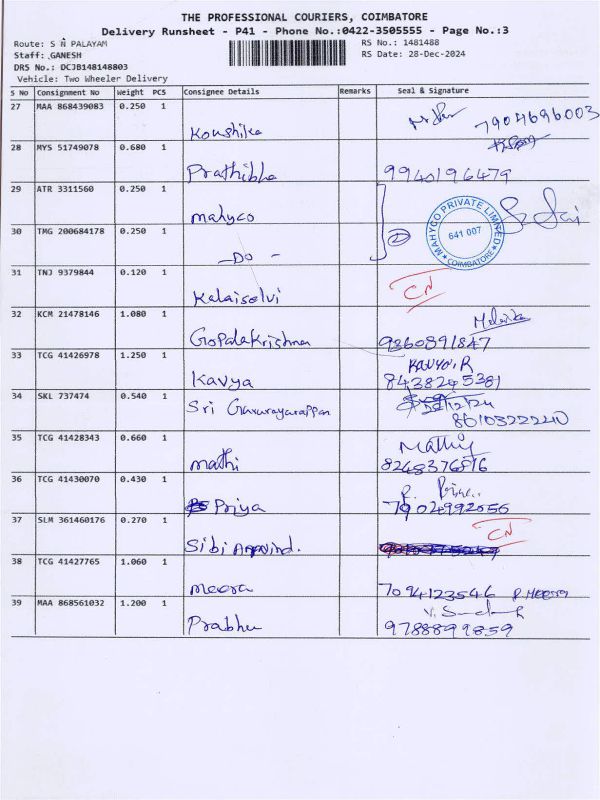 THE PROFESSIONAL COURIERS, COIMBATORE
Delivery Runsheet - P41 - Phone No.:0422-3505555 - Page No.:3
Route: S N PALAYAM
RS No.: 1481488
Staff: GANESH
RS Date: 28-Dec-2024
DRS No.: DCJB148148803
Vehicle: Two Wheeler Delivery
S No Consignment No Weight PCS Consignee Details Remarks Seal & Signature
27 MAA 868439083 0.250 1
Koushika 7904696003
28 MYS 51749078 0.680 1
Prathibha 9940196479
29 ATR 3311560 0.250 1
Mahyco
MAHYCO PRIVATE LIMITED
641 007
COIMBATORE
30 TMG 200684178 0.250 1
- Do -
31 TNJ 9379844 0.120 1
Kalaiselvi CN
32 KCM 21478146 1.080 1
Gopalakrishna 9360891847
33 TCG 41426978 1.250 1 Kavya.R
Kavya 8438245381
34 SKL 737474 0.540 1
Sri 8610322240
35 TCG 41428343 0.660 1 Mathi
mathi 8248376816
36 TCG 41430070 0.430 1
Priya 79024992056
37 SLM 361460176 0.270 1 CN
Sibi
38 TCG 41427765 1.060 1
Meera 7094123546 P. MEERA
39 MAA 868561032 1.200 1
Prabhu 9788899859